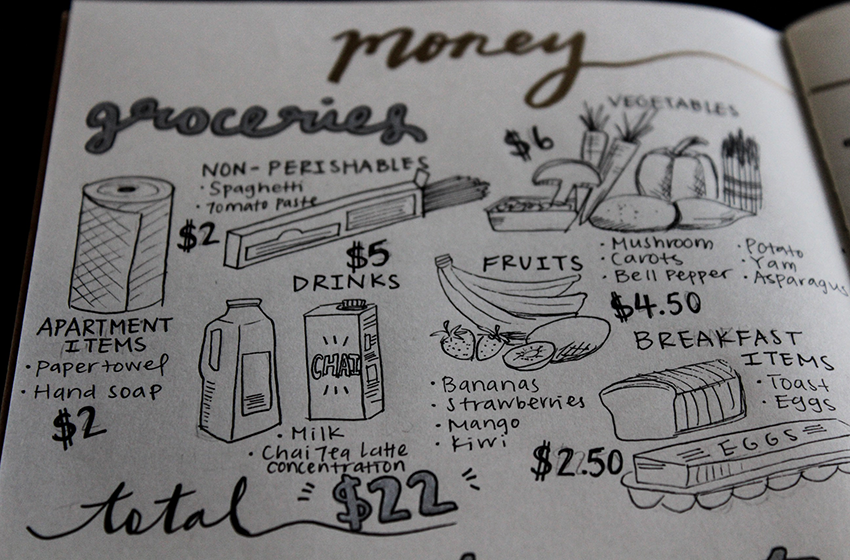 money
groceries
VEGETABLES
$6
NON-PERISHABLES
· Spaghetti
· Tomato Paste
$2
$5
DRINKS
FRUITS
· Mushroom
· Carots
· Bell Pepper
· Potato
· Yam
· Asparagus
$4.50
APARTMENT
ITEMS
· Paper towel
· Hand soap
$2
CHAI
· Milk
· Chai Tea Latte
concentration
· Bananas
· Strawberries
· Mango
· Kiwi
BREAKFAST
ITEMS
· Toast
· Eggs
$2.50
EGGS
total $22